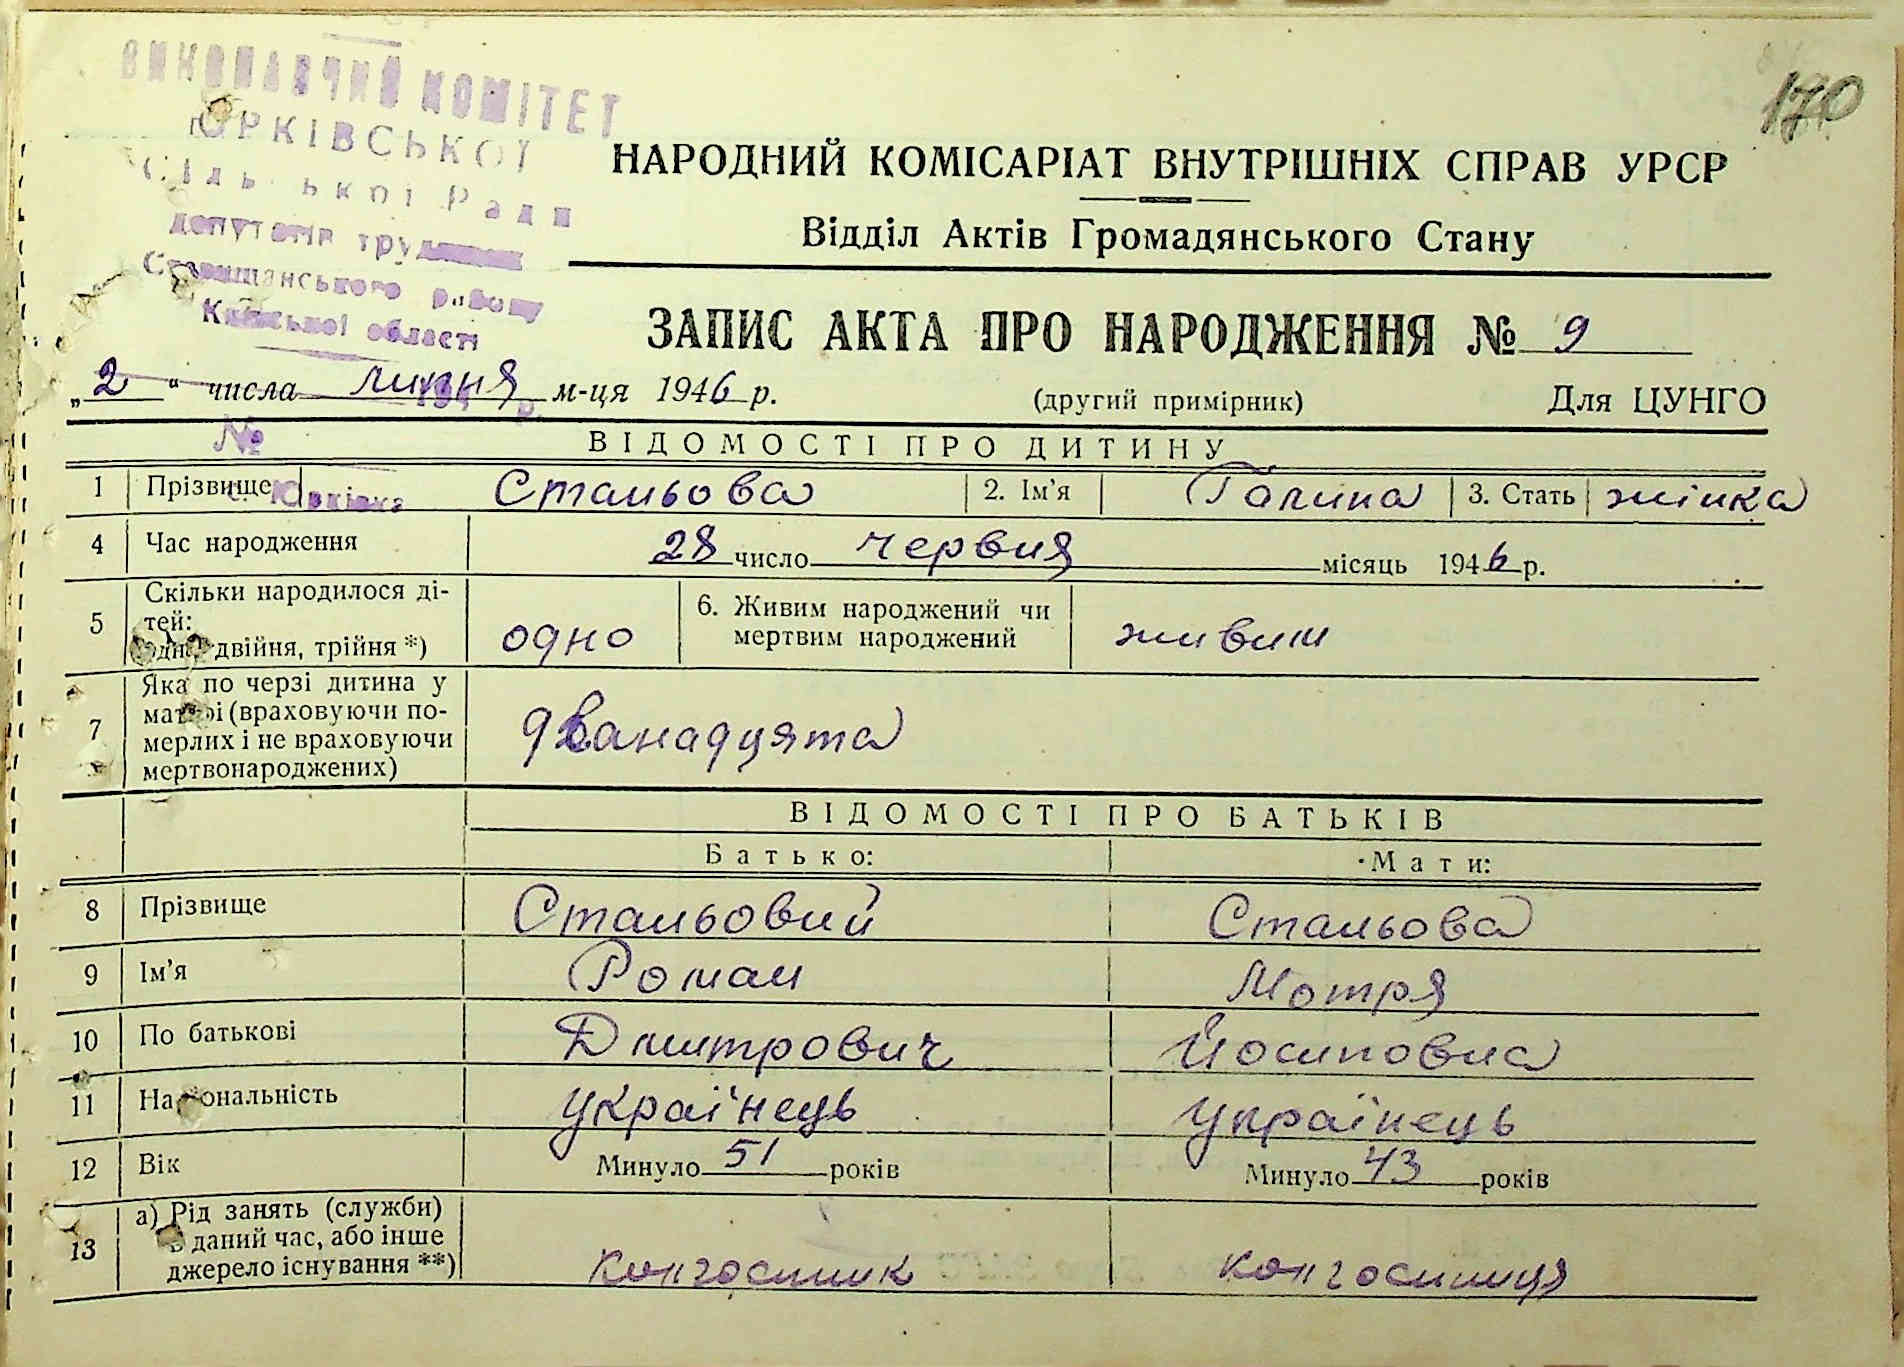 170
ВИКОНАВЧИЙ КОМІТЕТ
ЮРКІВСЬКОЇ
Сільської Ради
депутатів трудящих
Ставищанського району
Київської області
НАРОДНИЙ КОМІСАРІАТ ВНУТРІШНІХ СПРАВ УРСР
Відділ Актів Громадянського Стану
ЗАПИС АКТА ПРО НАРОДЖЕННЯ № 9
„2“ числа липня м-ця 1946 р. (другий примірник) Для ЦУНГО
194 р.
№
с. Юрківка
ВІДОМОСТІ ПРО ДИТИНУ
1 Прізвище Стальова 2. Ім'я Галина 3. Стать жінка
4 Час народження 28 число червня місяць 1946 р.
5 Скільки народилося ді-
тей:
одна двійня, трійня *) одно
6. Живим народжений чи
мертвим народжений живим
7 Яка по черзі дитина у
матері (враховуючи по-
мерлих і не враховуючи
мертвонароджених) дванадцята
ВІДОМОСТІ ПРО БАТЬКІВ
Батько: Мати:
8 Прізвище Стальовий Стальова
9 Ім'я Роман Мотря
10 По батькові Дмитрович Йосиповна
11 Національність українець українець
12 Вік Минуло 51 років Минуло 43 років
13 а) Рід занять (служби)
в даний час, або інше
джерело існування **) колгоспник колгоспниця